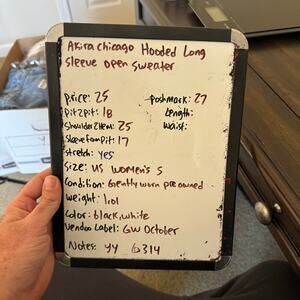 Akira chicago Hooded Long
sleeve open sweater
price: 25 poshmark: 27
pit2pit: 18 Length:
Shoulder2Hem: 25 Waist:
Sleeve from Pit: 17
stretch: yes
Size: US women's S
Condition: Gently worn preowned
Weight: 1.01
Color: black, white
Vendoo Label: GW October
Notes: yy 6314